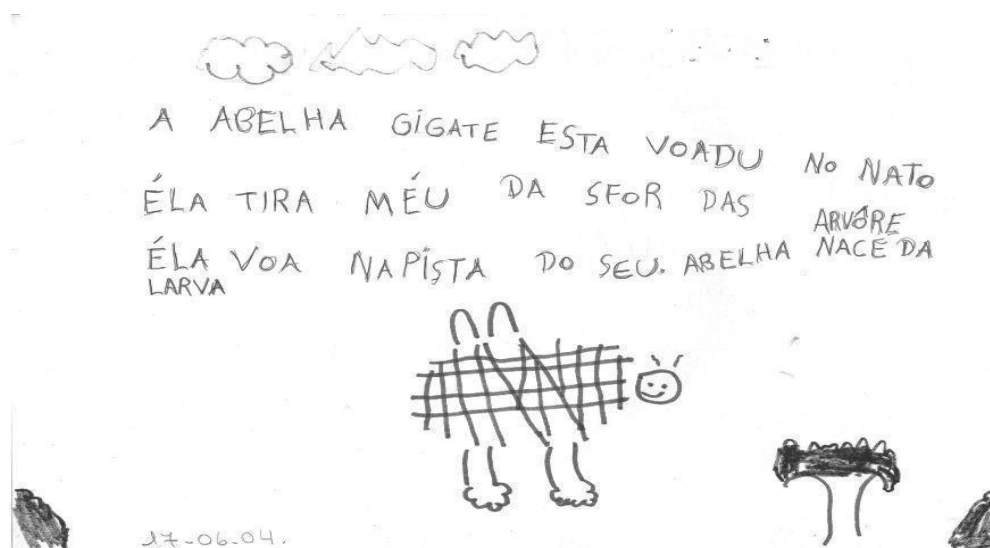 A ABELHA GÍGATE ESTA VOADU NO NATO
ÉLA TIRA MÉU DA SFOR DAS ARVÓRE
ÉLA VOA NAPÍSTA DO SEU. ABELHA NACE DA
LARVA
17-06-04.